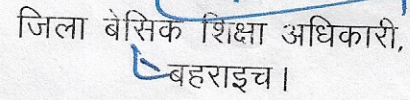 जिला बेसिक शिक्षा अधिकारी,
बहराइच।